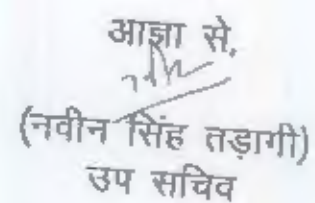 आज्ञा से,
(नवीन सिंह तड़ागी)
उप सचिव